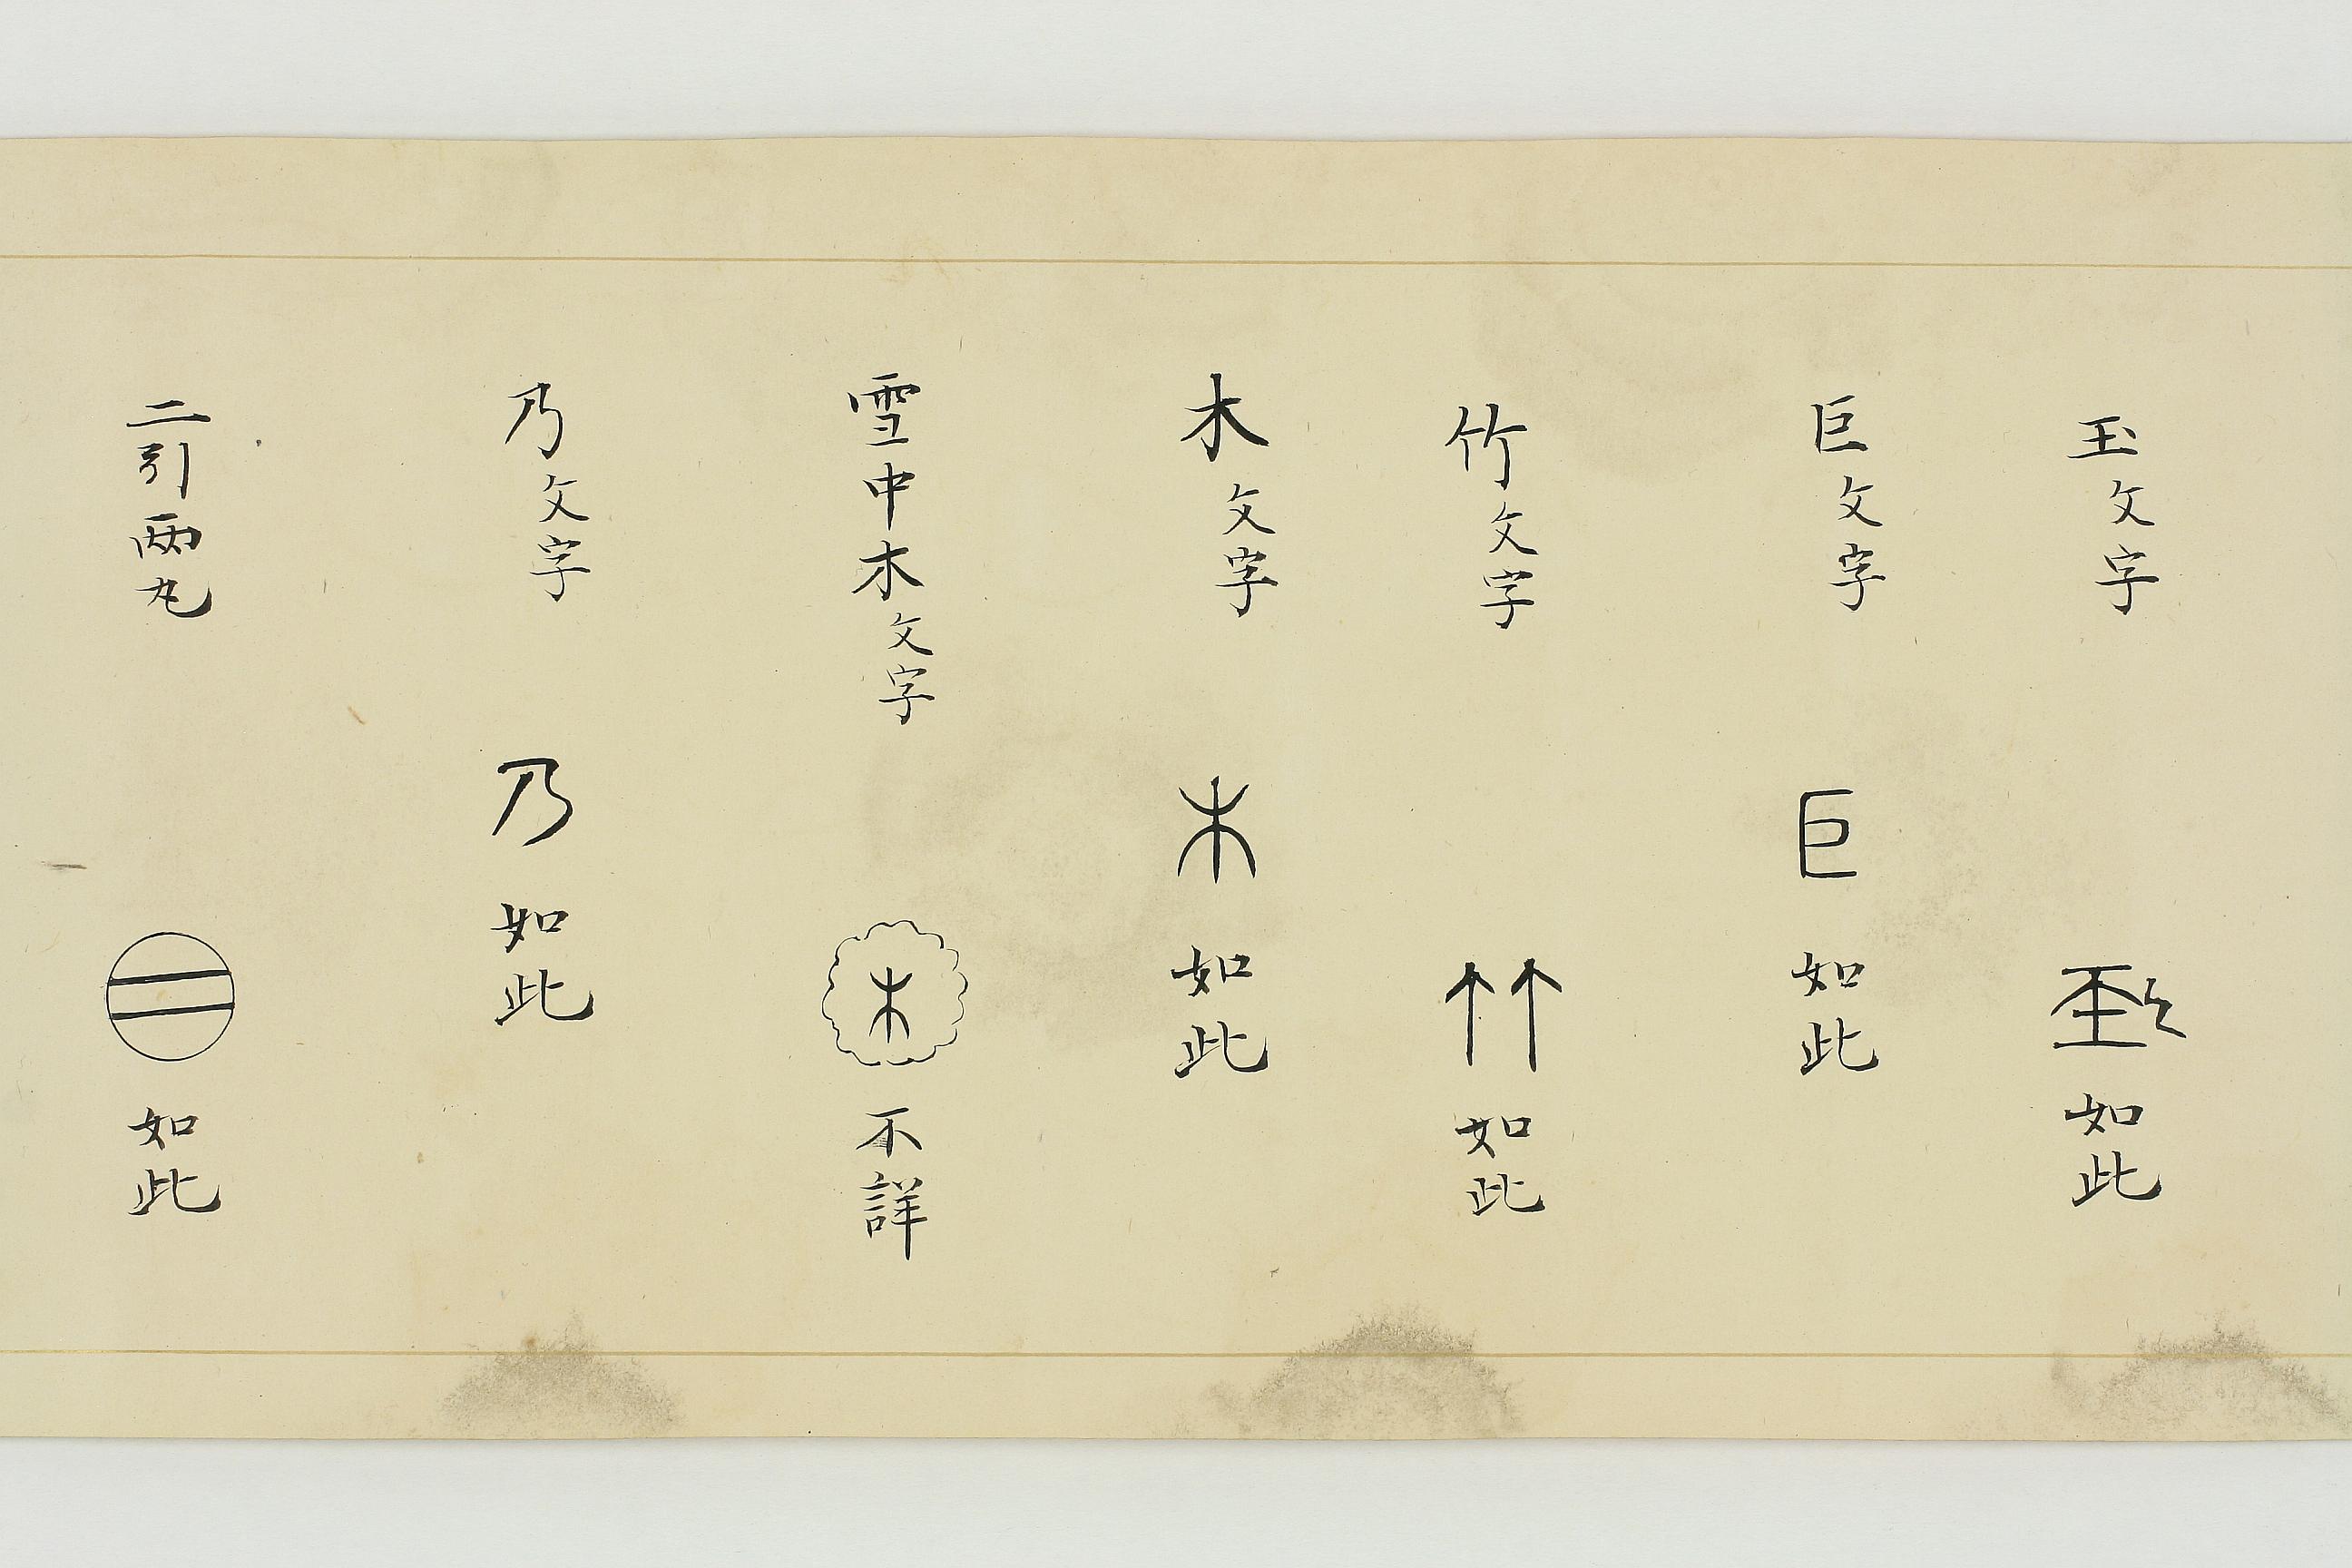 玉文字 玉 如此
巨文字 巨 如此
竹文字 如此
木文字 木 如此
雪中木文字 木 不詳
乃文字 乃 如此
二引両丸 如此